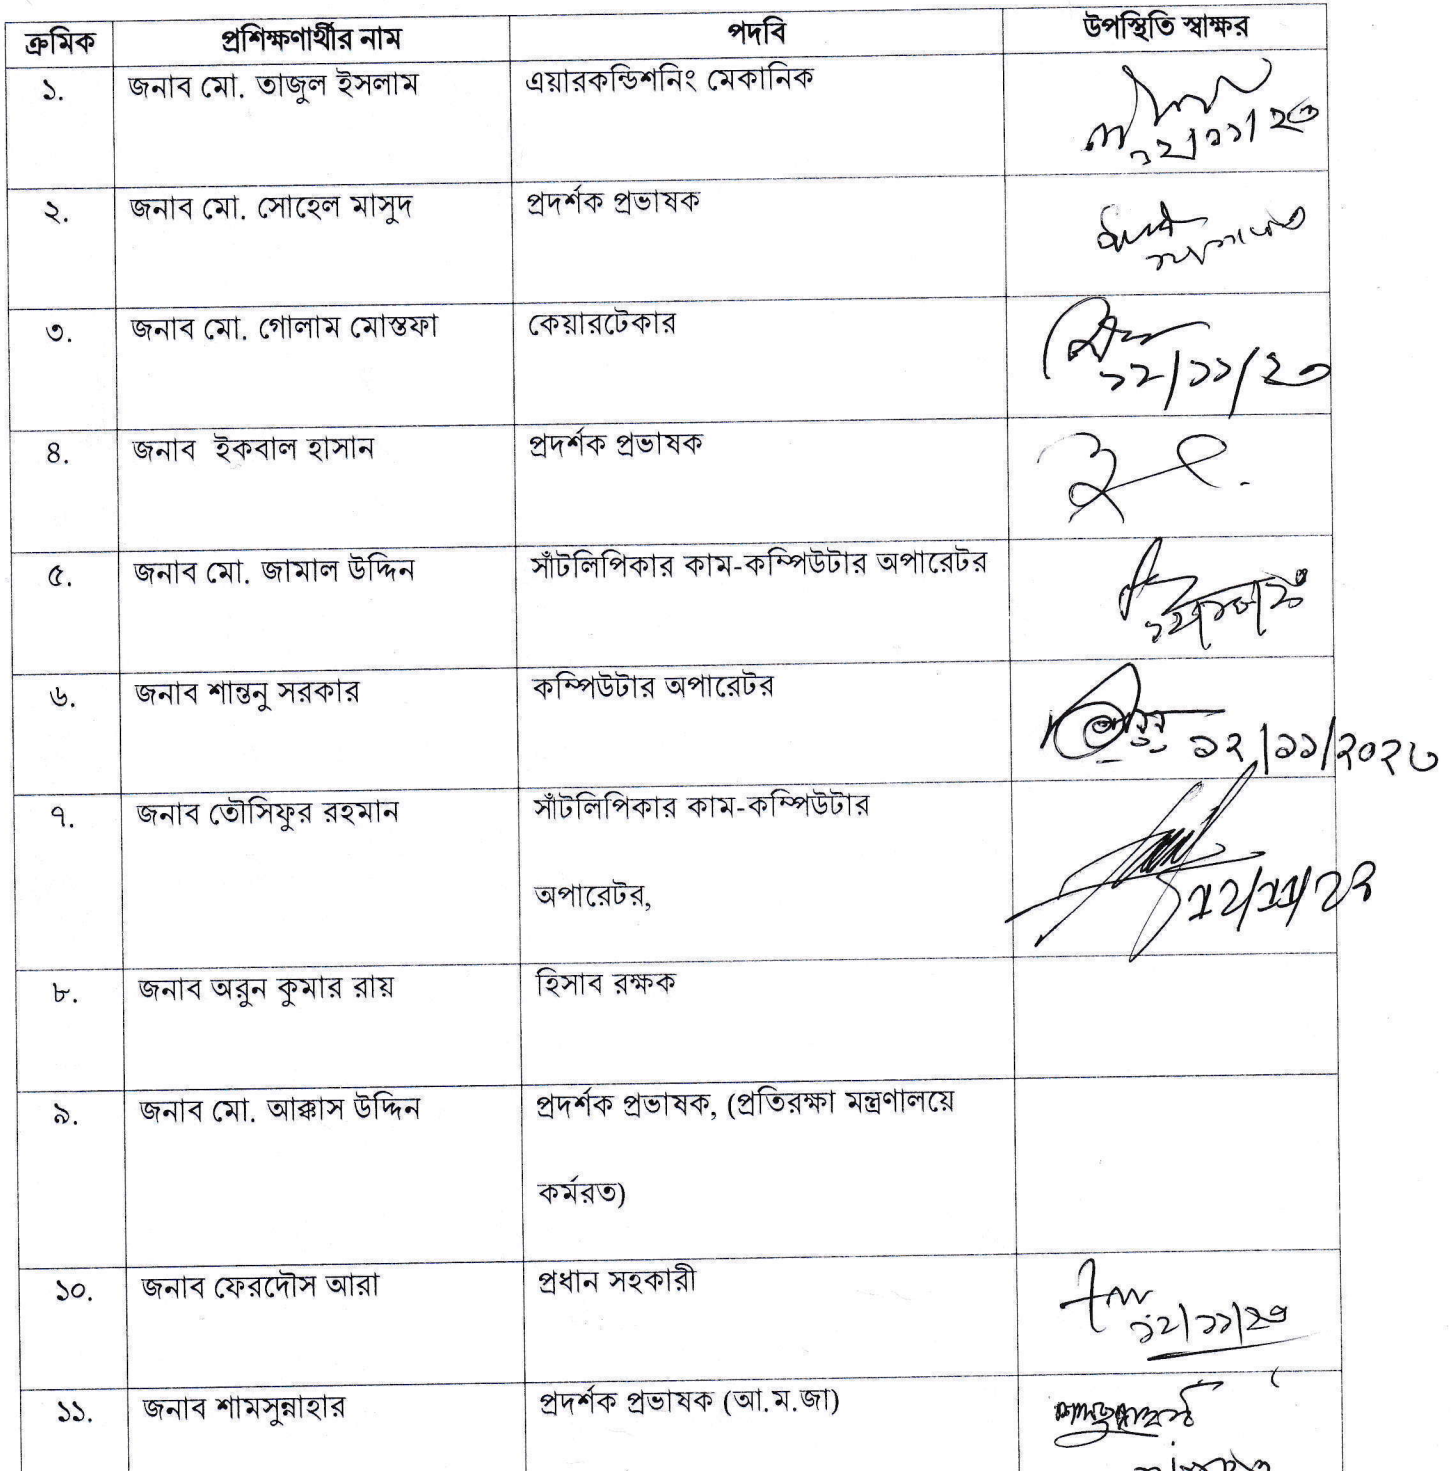 ক্রমিক প্রশিক্ষণার্থীর নাম পদবি উপস্থিতি স্বাক্ষর
১. জনাব মো. তাজুল ইসলাম এয়ারকন্ডিশনিং মেকানিক
১২/১১/২৩
২. জনাব মো. সোহেল মাসুদ প্রদর্শক প্রভাষক
৩. জনাব মো. গোলাম মোস্তফা কেয়ারটেকার
১২/১১/২৩
৪. জনাব ইকবাল হাসান প্রদর্শক প্রভাষক
৫. জনাব মো. জামাল উদ্দিন সাঁটলিপিকার কাম-কম্পিউটার অপারেটর
৬. জনাব শান্তনু সরকার কম্পিউটার অপারেটর
১২/১১/২০২৩
৭. জনাব তৌসিফুর রহমান সাঁটলিপিকার কাম-কম্পিউটার
অপারেটর,
৮. জনাব অরুন কুমার রায় হিসাব রক্ষক
৯. জনাব মো. আক্কাস উদ্দিন প্রদর্শক প্রভাষক, (প্রতিরক্ষা মন্ত্রণালয়ে
কর্মরত)
১০. জনাব ফেরদৌস আরা প্রধান সহকারী
১২/১১/২৩
১১. জনাব শামসুন্নাহার প্রদর্শক প্রভাষক (আ.ম.জা)